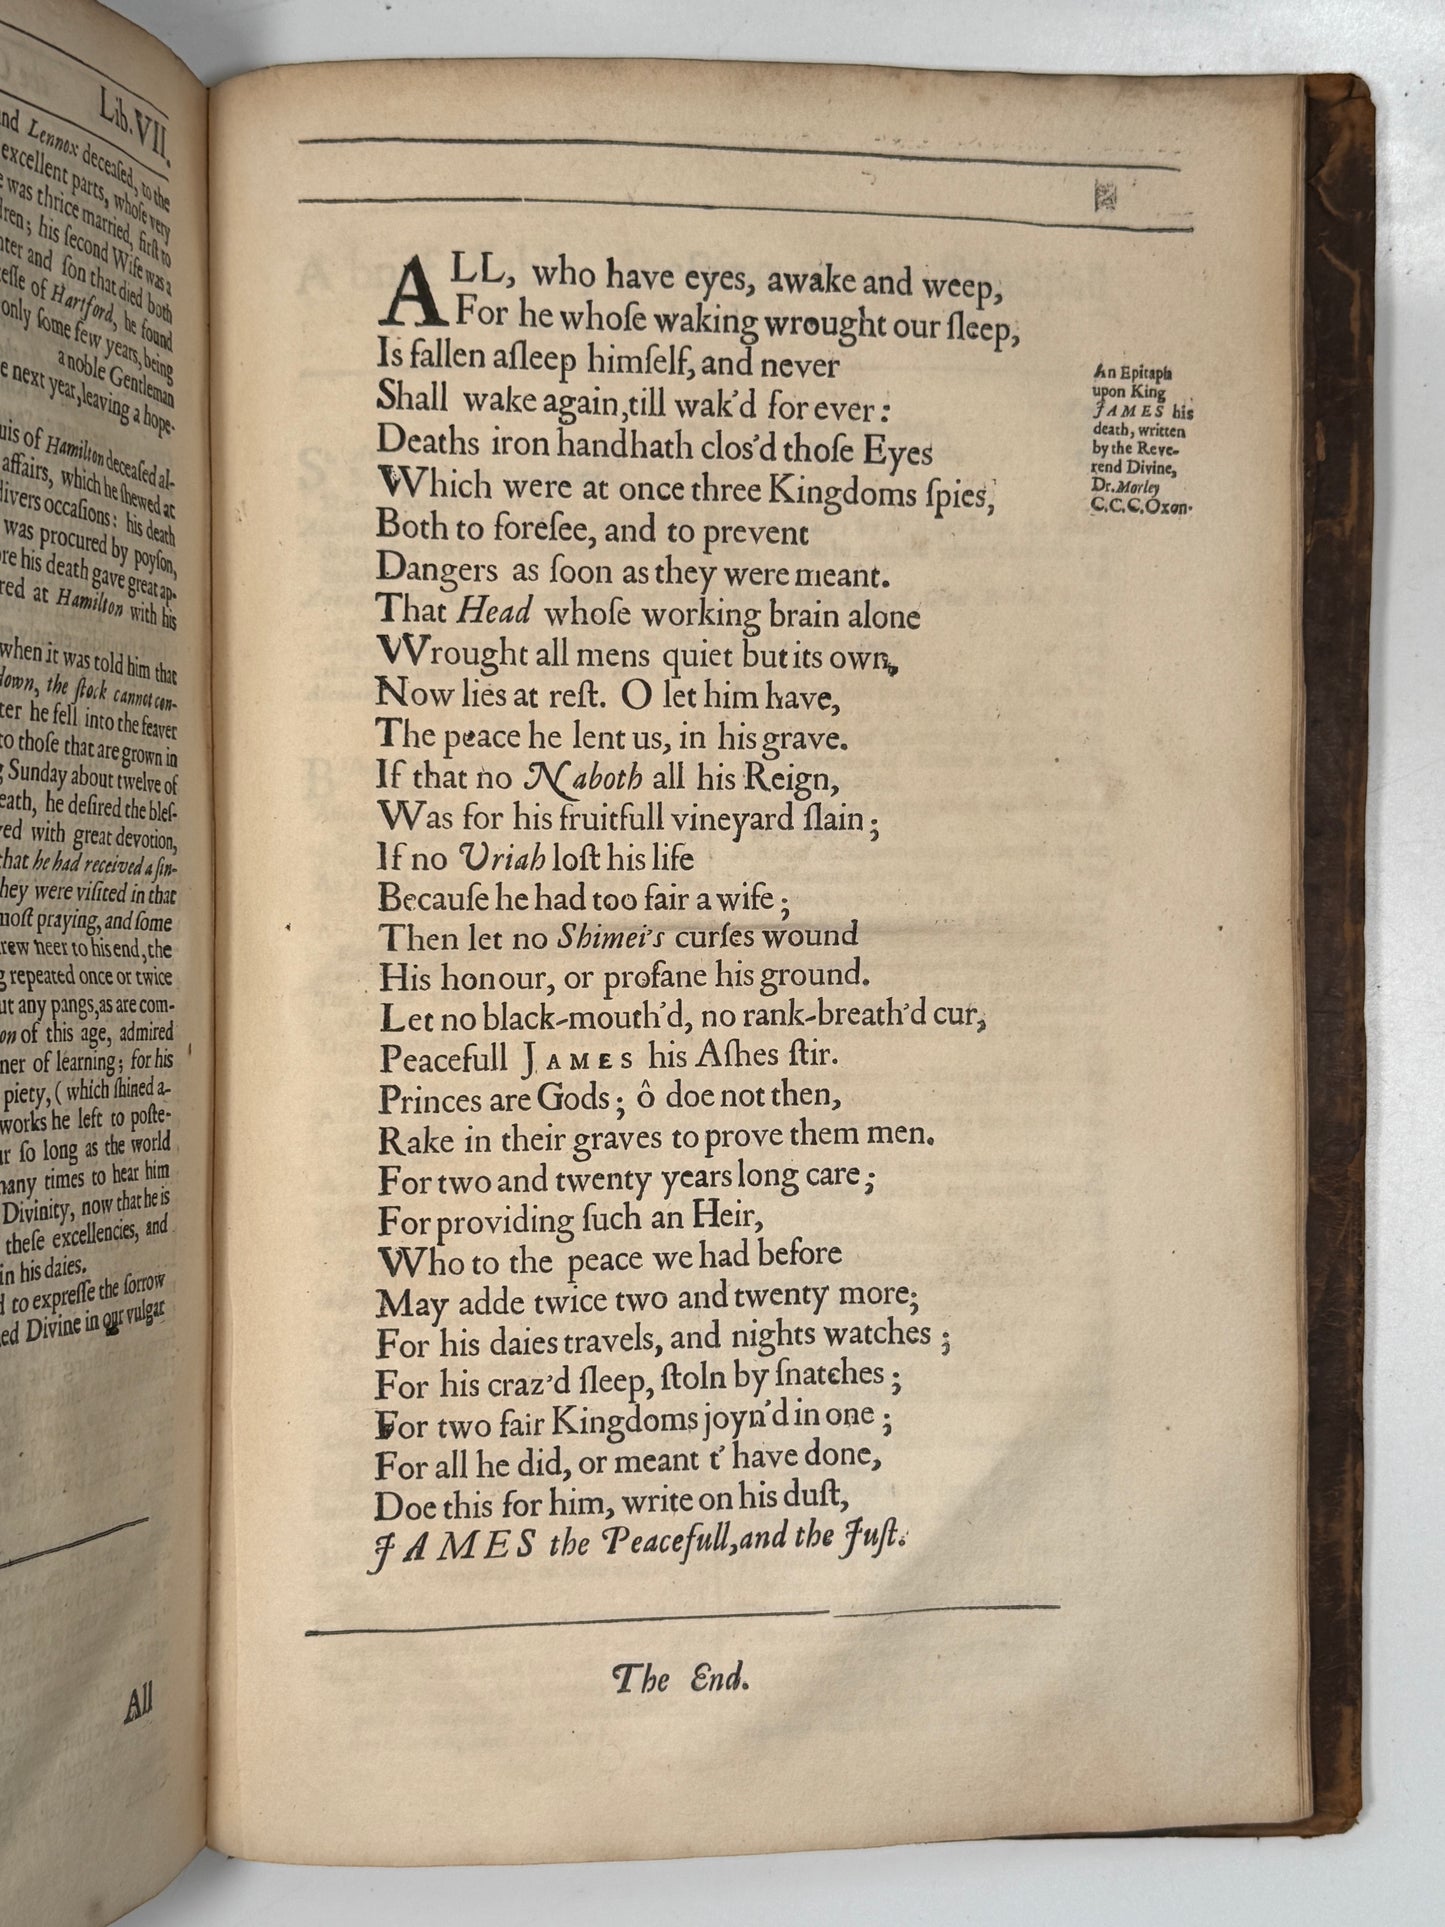 Lib.VII.
nd Lennox deceaſed, to the
excellent parts, whoſe very
was thrice married, firſt to
dren; his ſecond Wife was a
ter and ſon that died both
teſſe of Hartford, he found
only ſome few years, being
a noble Gentleman
e next year, leaving a hope-
uis of Hamilton deceaſed al-
affairs, which he ſhewed at
divers occaſions: his death
was procured by poyſon,
re his death gave great ap-
red at Hamilton with his
when it was told him that
down, the ſtock cannot con-
ter he fell into the feaver
to thoſe that are grown in
Sunday about twelve of
eath, he deſired the bleſ-
ved with great devotion,
that he had received a ſin-
they were viſited in that
moſt praying, and ſome
rew neer to his end, the
g repeated once or twice
ut any pangs, as are com-
on of this age, admired
ner of learning; for his
piety, ( which ſhined a-
works he left to poſte-
ur ſo long as the world
many times to hear him
Divinity, now that he is
theſe excellencies, and
in his daies.
d to expreſſe the ſorrow
ed Divine in our vulgar
All
ALL, who have eyes, awake and weep,
For he whoſe waking wrought our ſleep,
Is fallen aſleep himſelf, and never
Shall wake again, till wak'd for ever:
Deaths iron hand hath clos'd thoſe Eyes
Which were at once three Kingdoms ſpies,
Both to foreſee, and to prevent
Dangers as ſoon as they were meant.
That Head whoſe working brain alone
Wrought all mens quiet but its own,
Now lies at reſt. O let him have,
The peace he lent us, in his grave.
If that no Naboth all his Reign,
Was for his fruitfull vineyard ſlain;
If no Uriah loſt his life
Becauſe he had too fair a wife;
Then let no Shimei's curſes wound
His honour, or profane his ground.
Let no black-mouth'd, no rank-breath'd cur,
Peacefull JAMES his Aſhes ſtir.
Princes are Gods; ô doe not then,
Rake in their graves to prove them men.
For two and twenty years long care;
For providing ſuch an Heir,
Who to the peace we had before
May adde twice two and twenty more;
For his daies travels, and nights watches;
For his craz'd ſleep, ſtoln by ſnatches;
For two fair Kingdoms joyn'd in one;
For all he did, or meant t' have done,
Doe this for him, write on his duſt,
JAMES the Peacefull, and the Juſt.
An Epitaph
upon King
JAMES his
death, written
by the Reve-
rend Divine,
Dr. Morley
C.C.C. Oxon.
The End.